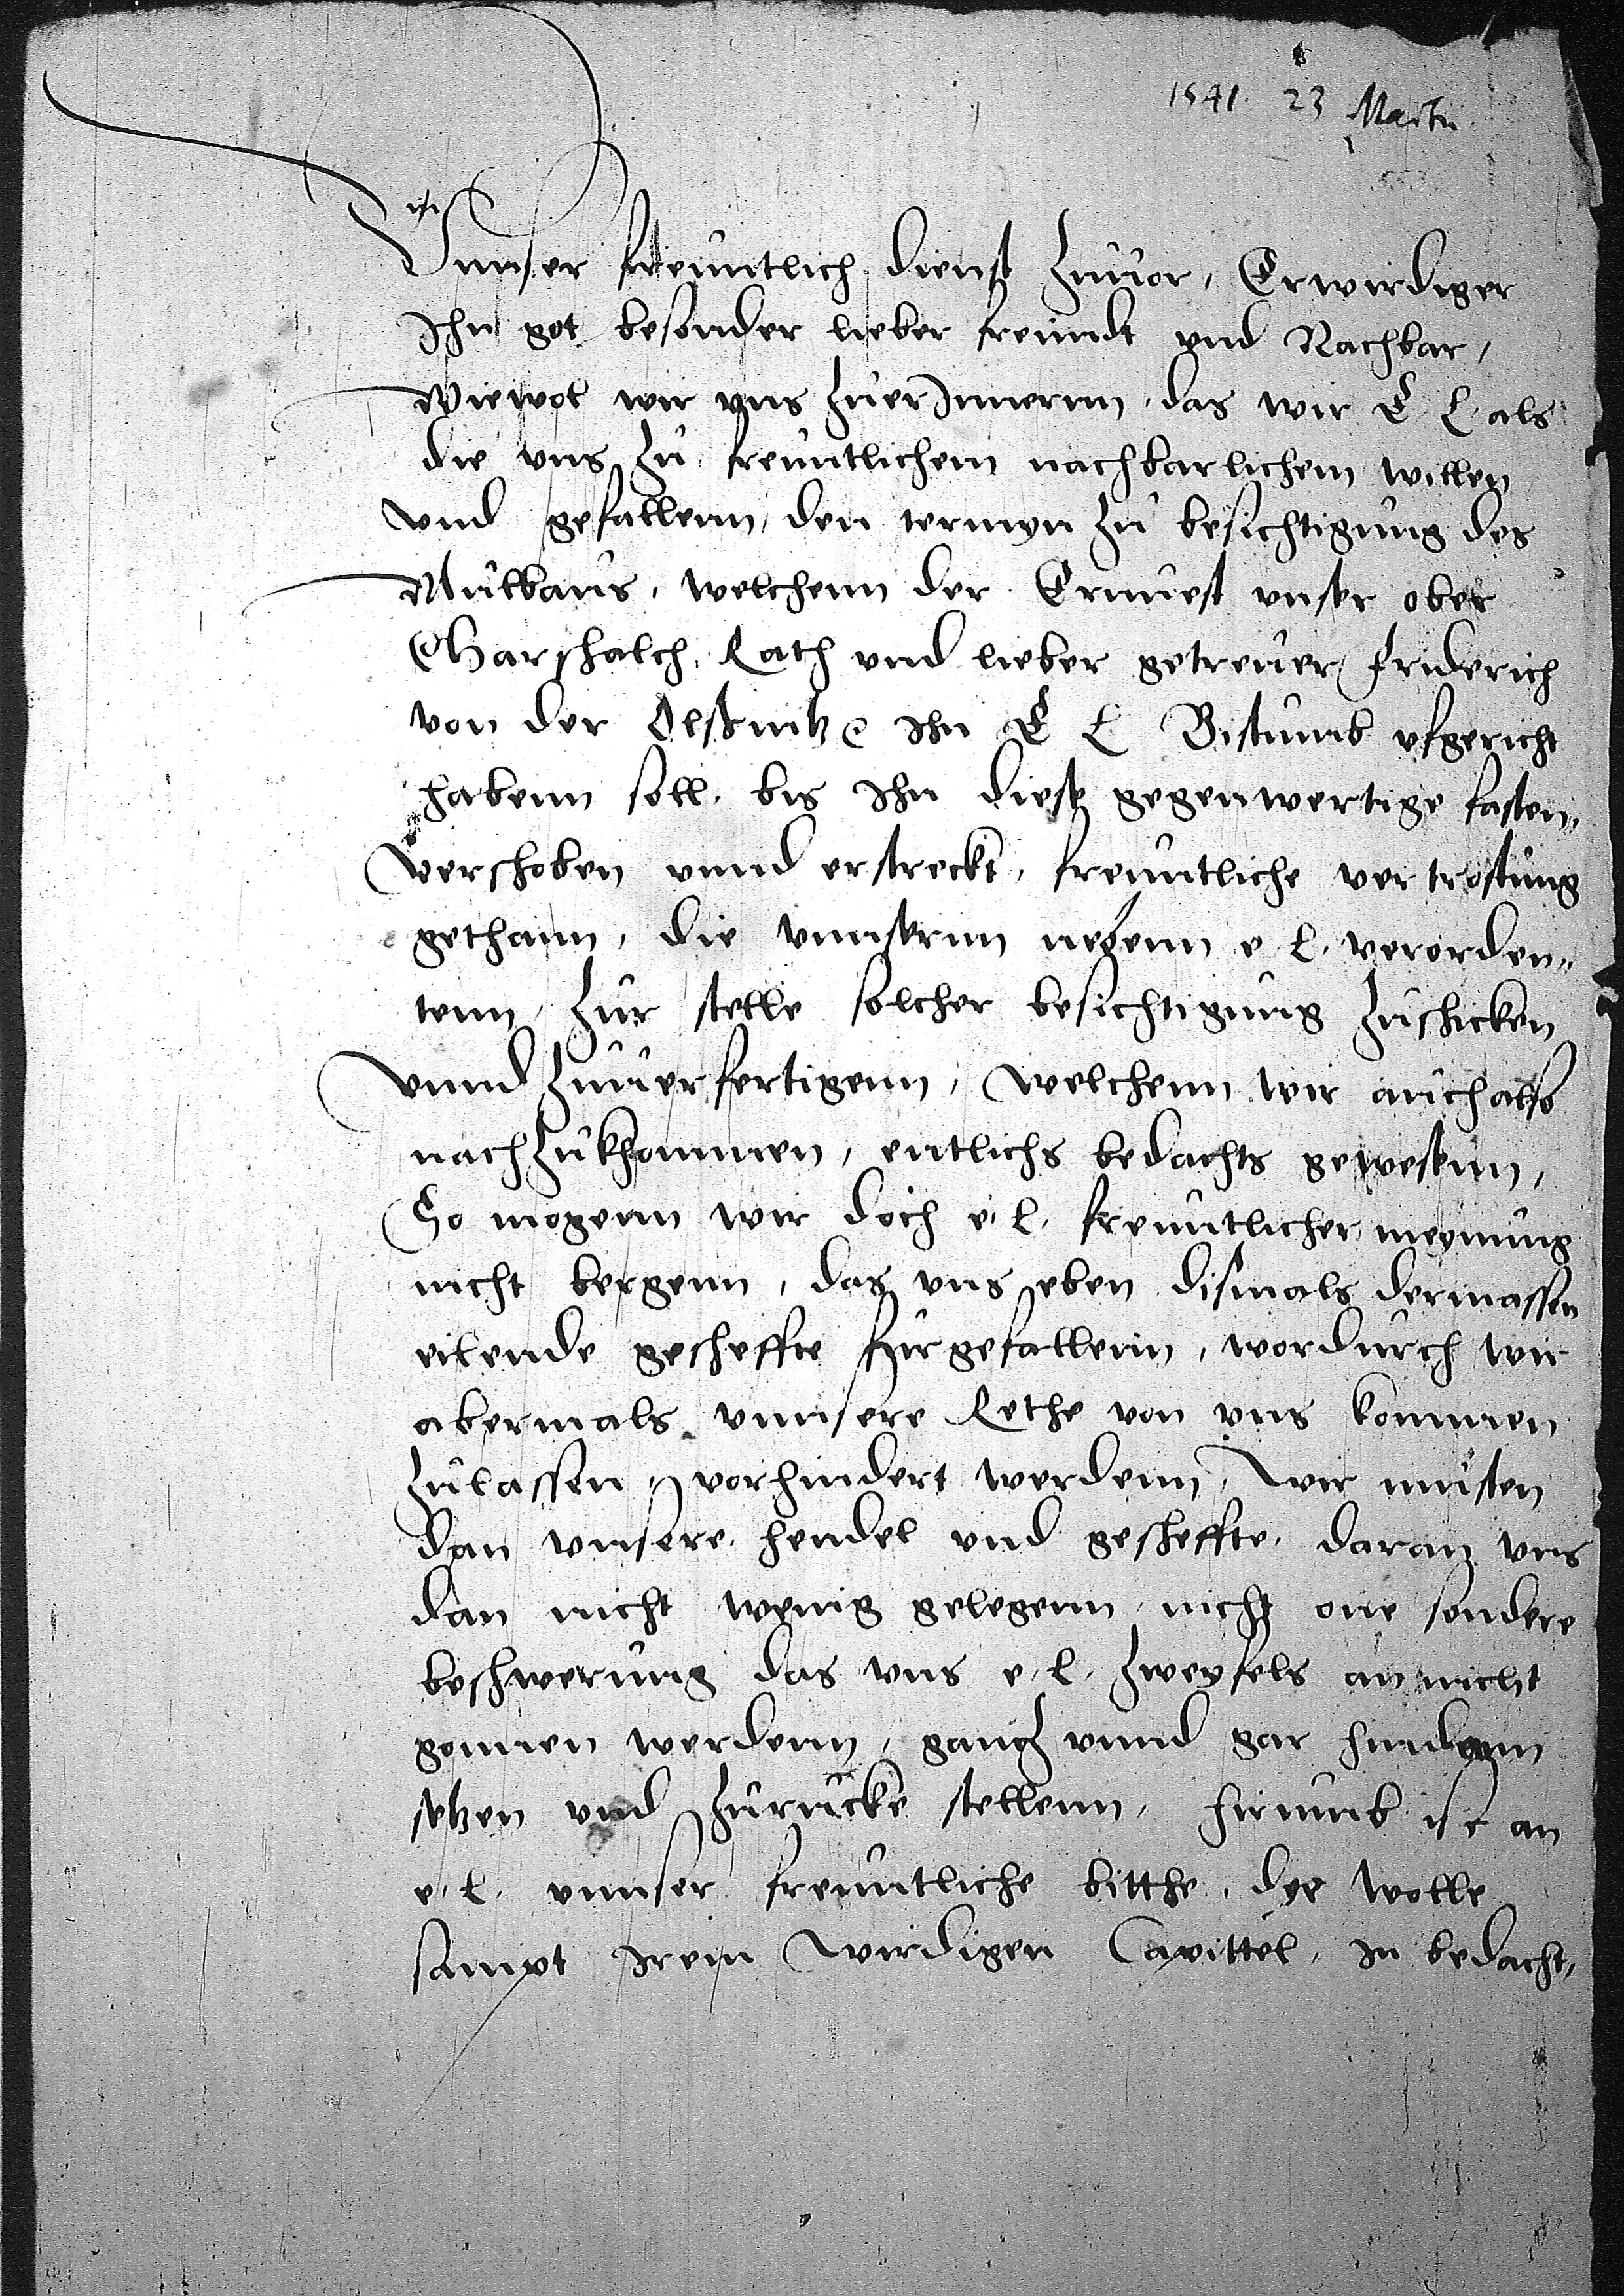 1541. 23 Martii
553.
Vnnser freuntlich dienst zuuor, Erwirdiger
Ihn got besonder lieber freundt vnd Nachbar,
Wiewol wir vns zuerInnernn, das wir E L als
die vns zu freuntlichem nachbarlichem willen
vnd gefallenn, den termyn zu besichtigung des
Mulbaus, welchenn der Ernuest vnser ober
Marschalch, Rath vnd lieber getreuer Friderich
von der Olssnitz Ihn E L Bistumb vfgericht
habenn soll, bis Ihn diese gegenwertige fasten,
verschoben vnnd erstreckt, freuntliche vertrostung
gethann, die vnnsernn nebenn e. l. verorden,,
tenn, zur stelle solcher besichtigung zuschicken
vnnd zuuerfertigenn, welchenn wir auch also
nachzukhommen, entlichs bedachts gewesenn,
So mogenn wir doch e. l. freuntlicher meynung
nicht bergenn, das vns eben dismals dermassen
eilende gescheffte fürgefallenn, wordurch wir
abermals vnnsere Rethe von vns kommen
zulassen, vorhindert werdenn, wir musten
dan vnsere hendel vnd gescheffte, daran vns
dan nicht wenig gelegenn, nicht one sondere
beschwerung das vns e. l. zweyfels an nicht
gonnen werdenn, gantz vnnd gar hindann
setzen vnd zurucke stellenn, hirumb ist an
e. l. vnnser freuntliche bitthe, dye wolle
sampt Irem wirdigen Capittel, In bedacht,